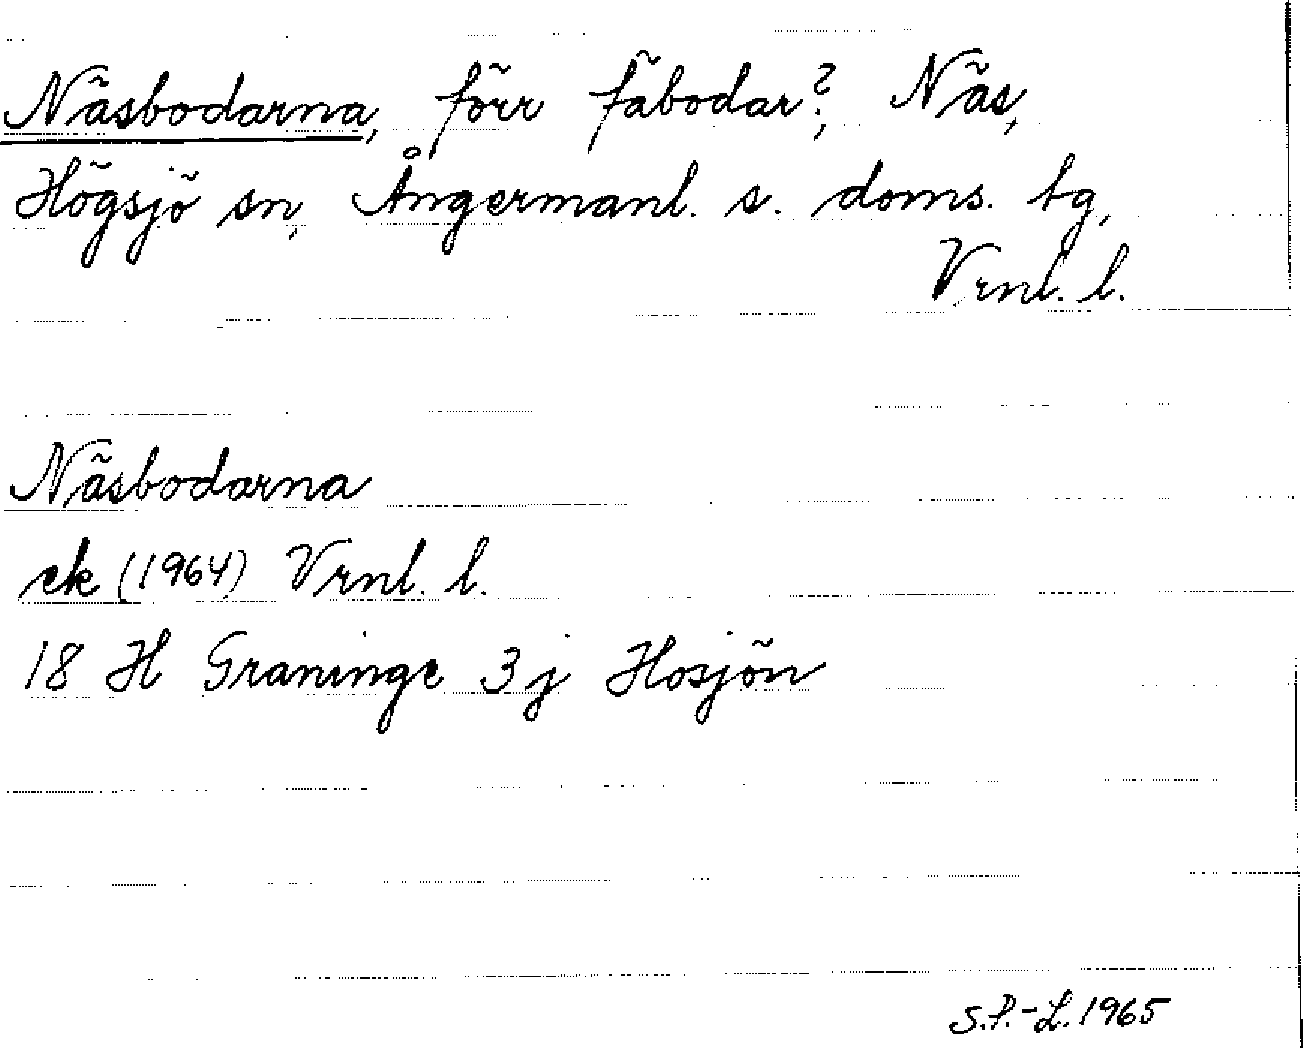 Näsbodarna, förr fäbodar?, Näs,
Högsjö sn, Ångermanl. s. doms. tg,
Vrnl. l.
Näsbodarna
ek (1964) Vrnl. l.
18 H Graninge 3j Hosjön
S.P.-L. 1965